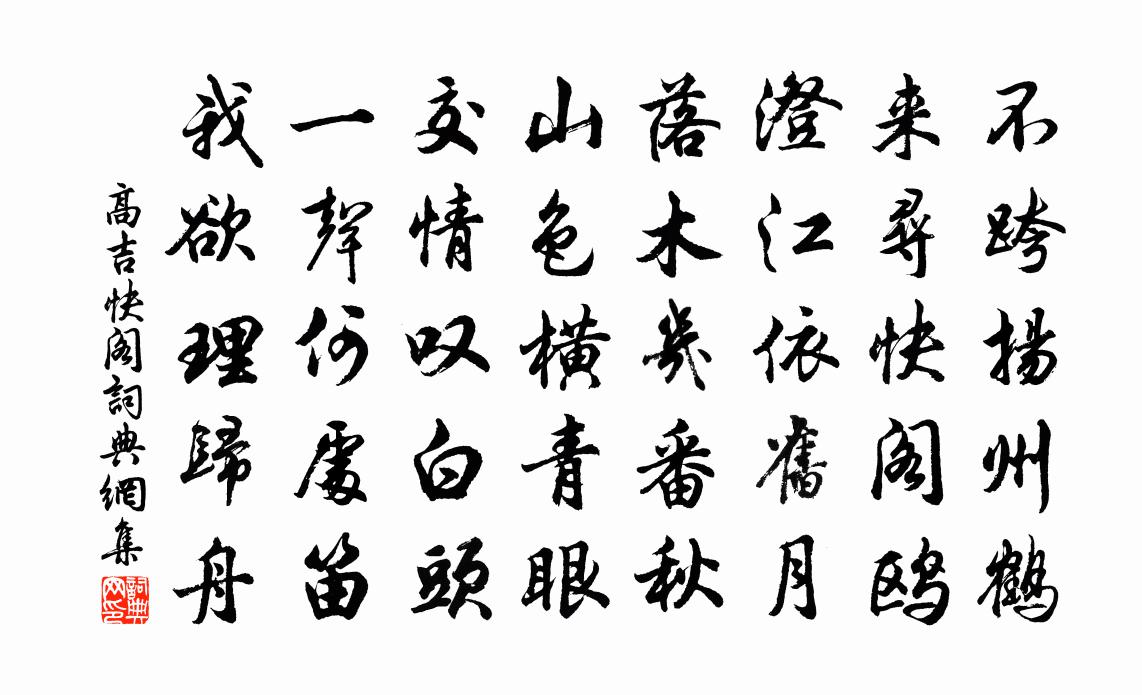 不跨揚州鶴
来尋快阁鸥
澄江依舊月
落木幾番秋
山色橫青眼
交情叹白頭
一聲何處笛
我欲理歸舟
高吉快阁詞典網集
詞典网印